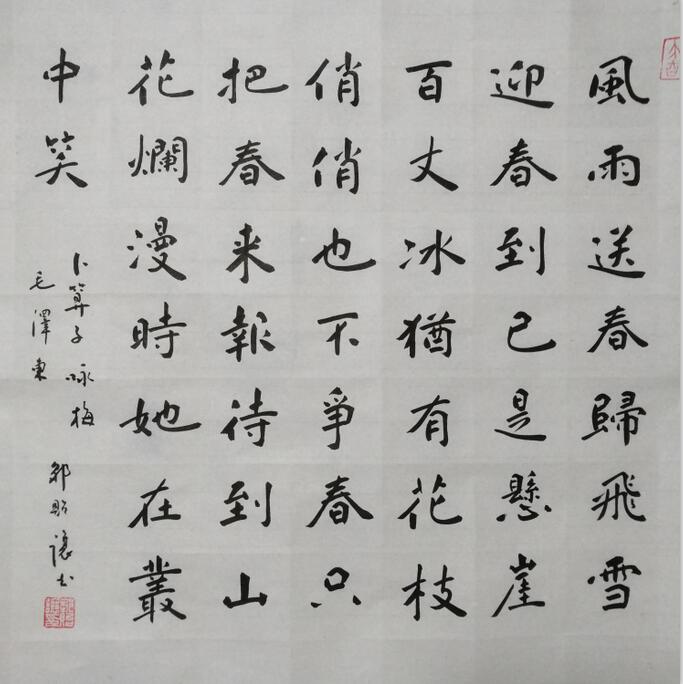 風雨送春歸飛雪
迎春到已是懸崖
百丈冰猶有花枝
俏俏也不爭春只
把春来報待到山
花爛漫時她在叢
中笑
卜算子 咏梅
毛澤東
书